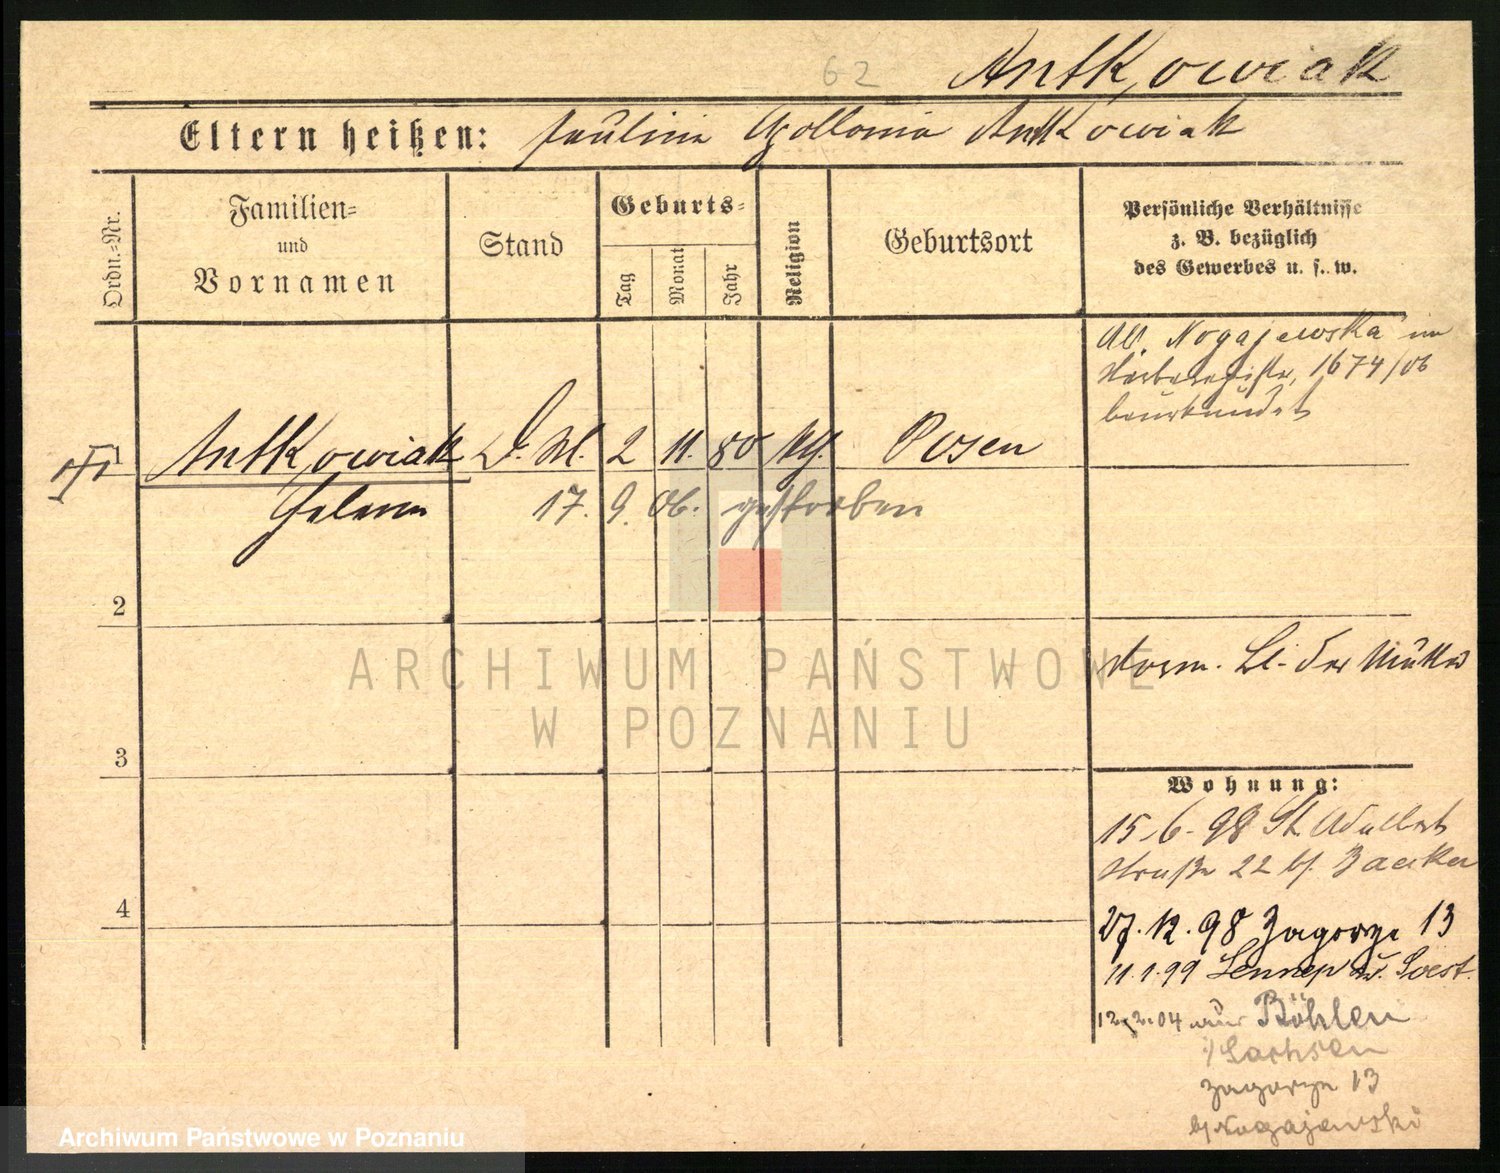 62 Antkowiak
Eltern heißen: Paulina Apollonia Antkowiak
Ordn.=Nr.
Familien=
und
Vornamen
Stand
Geburts=
Tag
Monat
Jahr
Religion
Geburtsort
Persönliche Verhältnisse
z. B. bezüglich
des Gewerbes u. s. w.
Als Nogajewska im
Sterberegister 1674/06
beurkundet
1
Antkowiak D. M. 2 11. 80 kth. Posen
Helene
17. 9. 06. gestorben
2
Dom. bei der Mutter
3
Wohnung:
15.6.98 St. Adalbert
straße 22 b/
4
27.12.98 Zagorze 13
11.1.99 Lennep Soest.
12.2.04 aus Böhlen
i/Sachsen
Zagorze 13
b/Nogajewski
ARCHIWUM PAŃSTWOWE
W POZNANIU
Archiwum Państwowe w Poznaniu